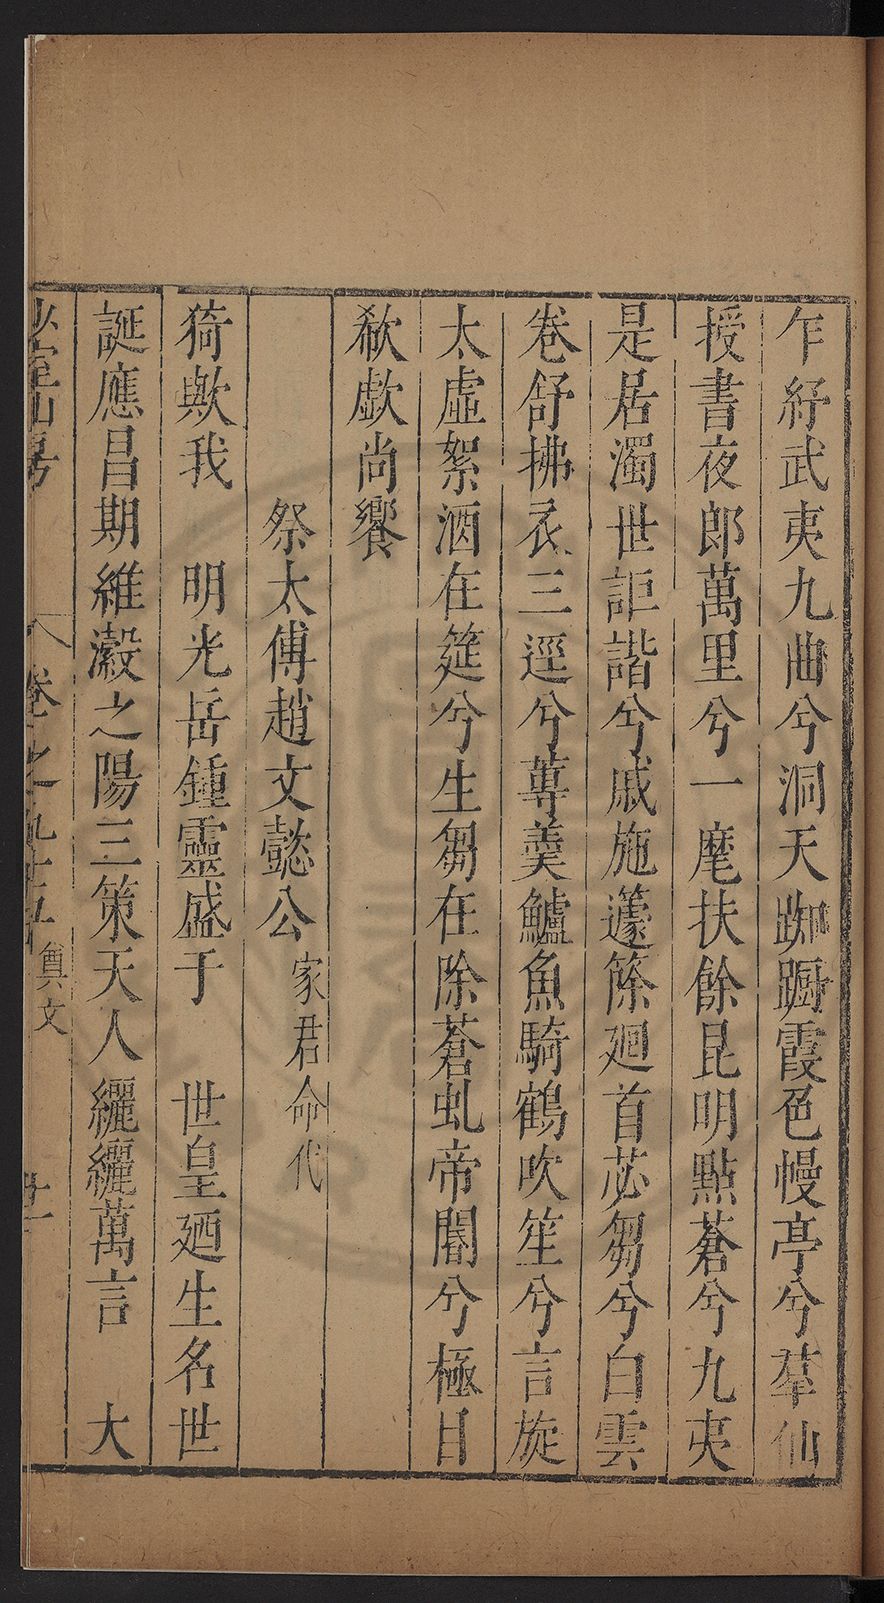 乍紆武夷九曲兮洞天踟躕霞色幔亭兮羣仙
授書夜郎萬里兮一麾扶餘昆明點蒼兮九夷
是居濁世詎諧兮戚施蘧篨廻首苾芻兮白雲
卷舒拂衣三逕兮蓴羹鱸魚騎鶴吹笙兮言旋
太虛絮酒在筵兮生芻在除蒼虬帝閽兮極目
欷歔尚饗
祭太傅趙文懿公 家君命代
猗歟我 明光岳鍾靈盛于 世皇廼生名世
誕應昌期維瀫之陽三策天人纚纚萬言 大
少室山房 卷之九十五 奠文 廿一